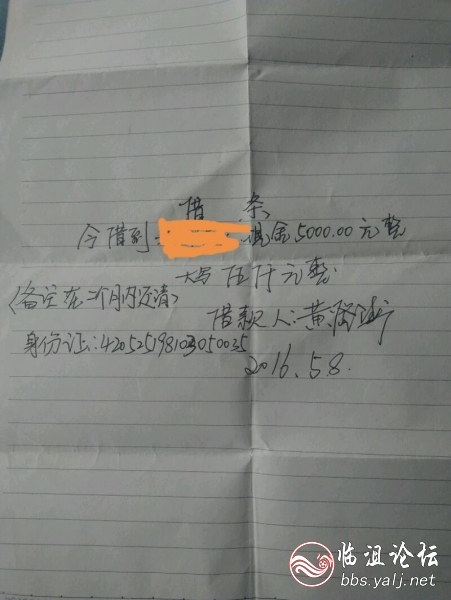 借 条
今借到 现金5000.00元整
大写 伍仟元整.
(备注在二个月内还清)
借款人:黄
身份证:420525198103050035
2016.5.8.
临沮论坛
bbs.yalj.net